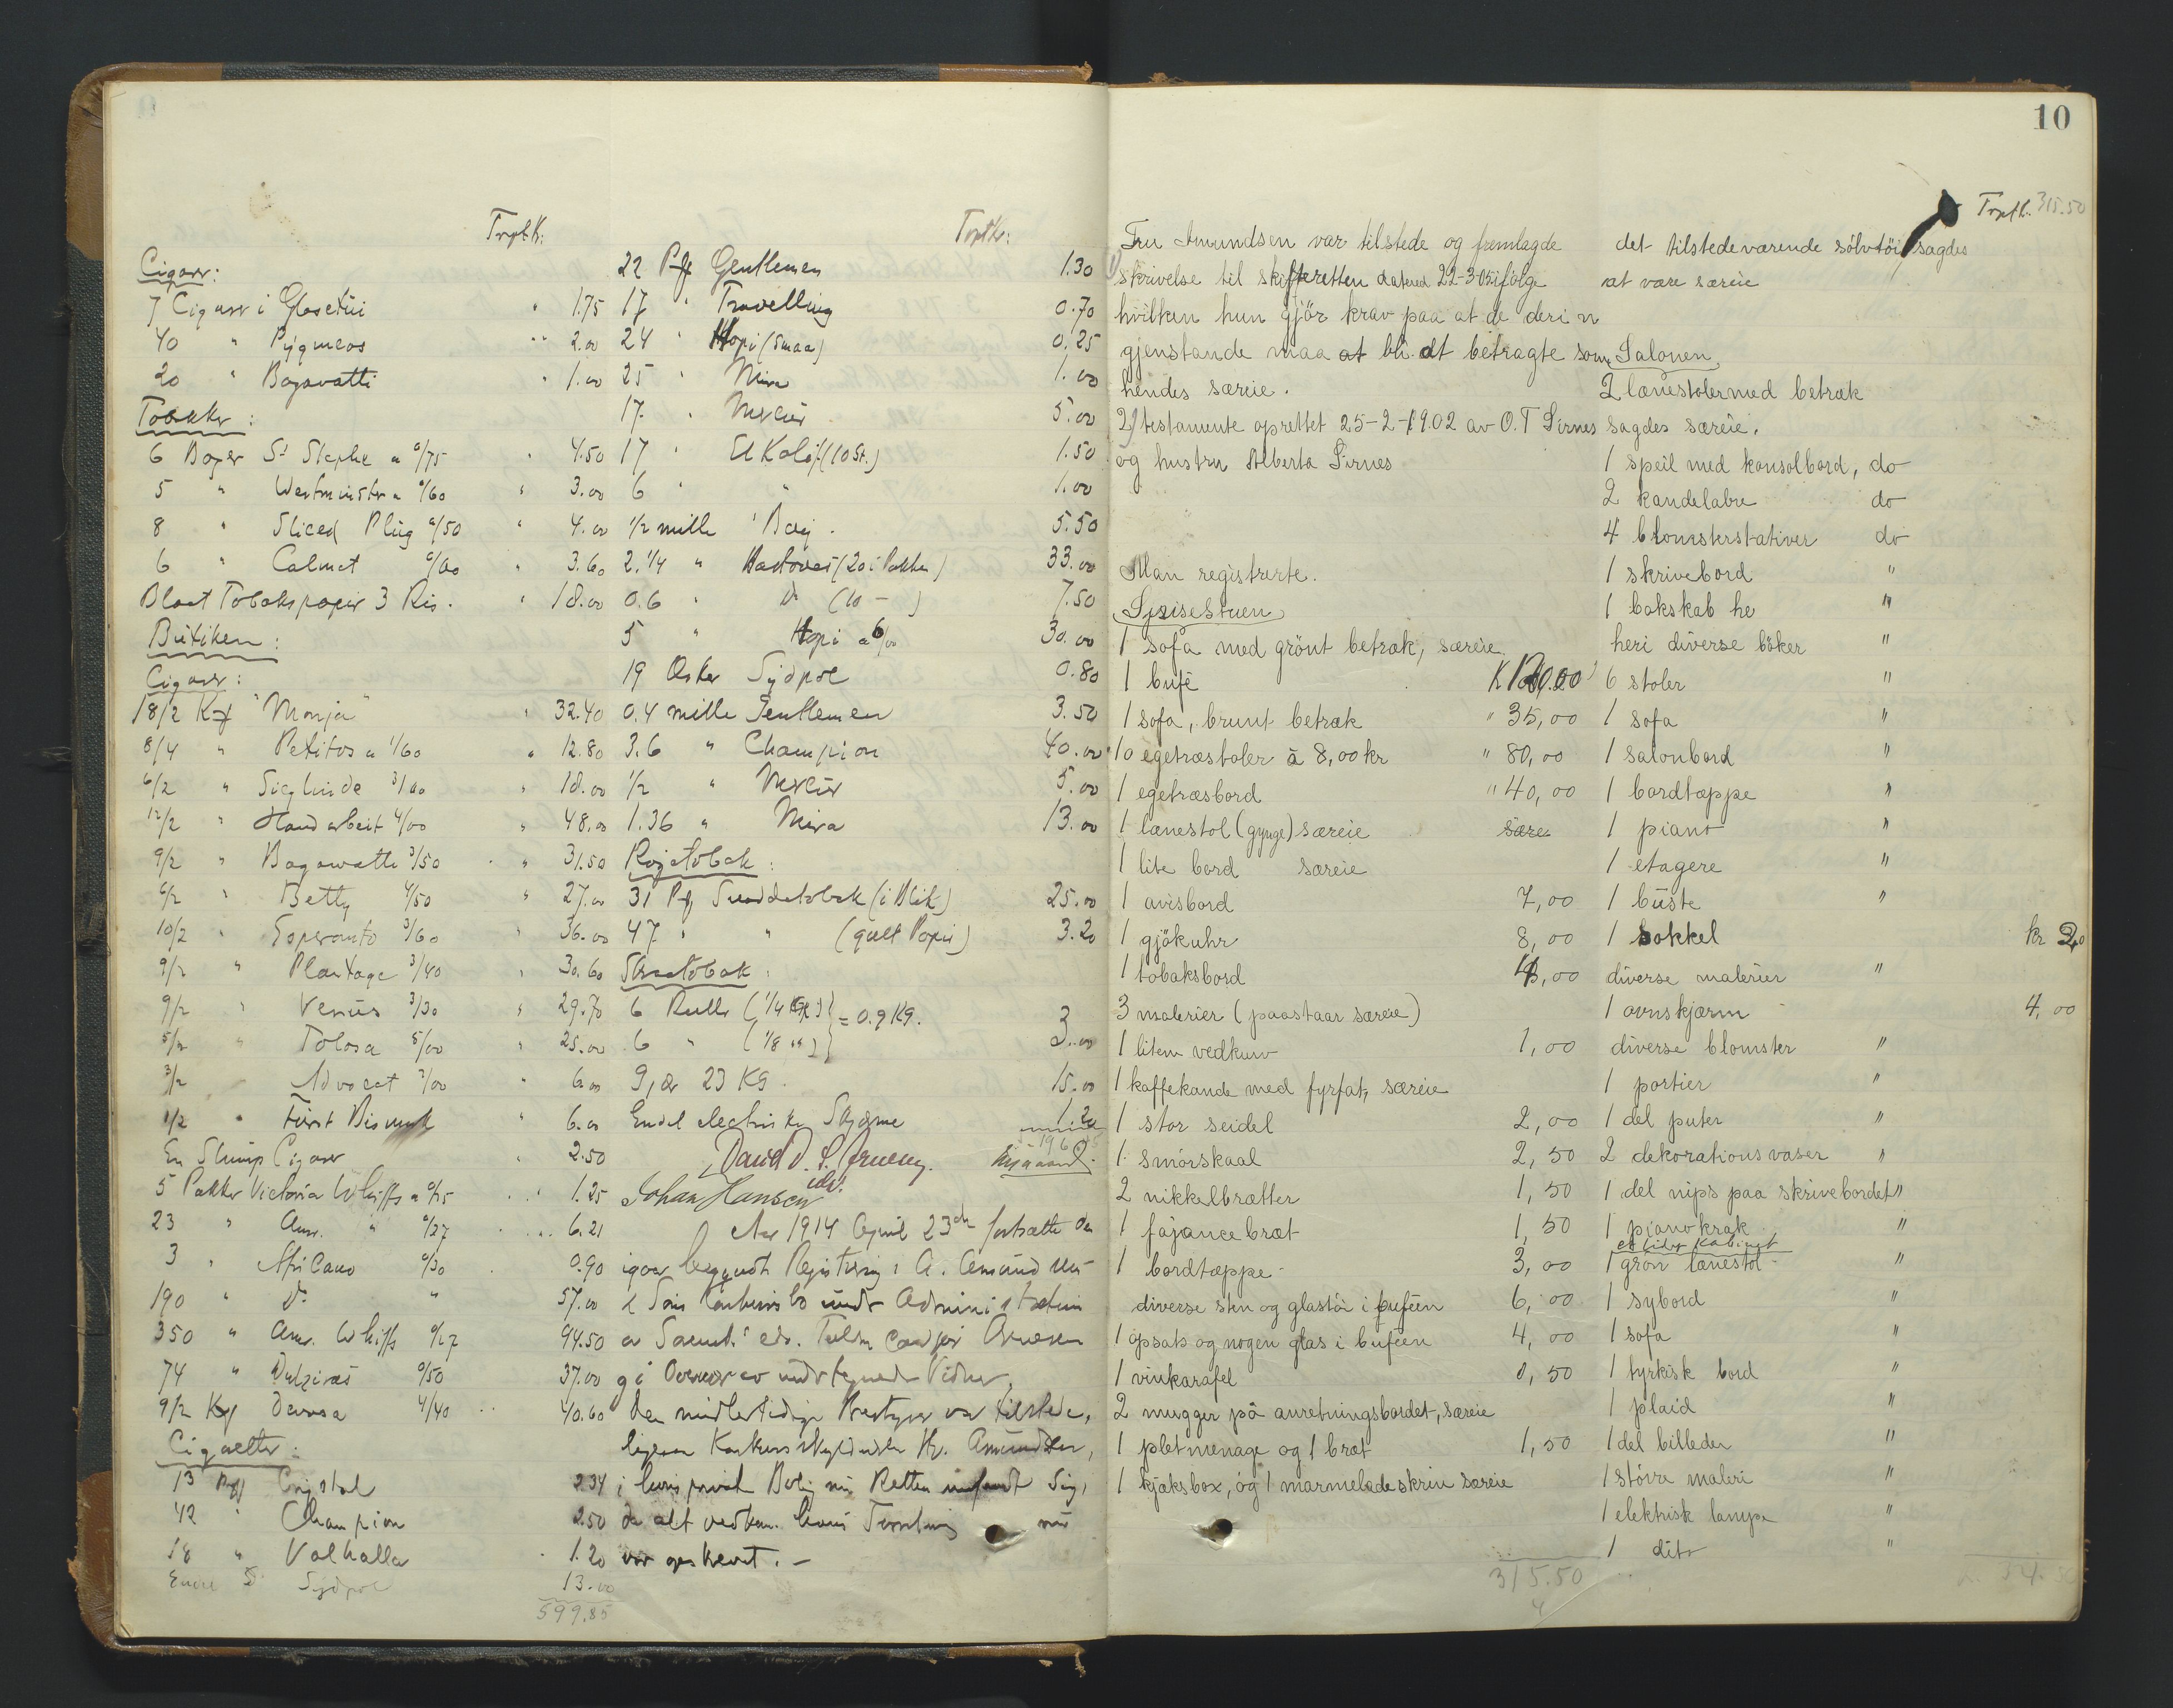 Cigarr:
7 Cigarr i Glasetui " 1.75
40 " Pygmeos " 2.00
20 " Bagavatti " 1.00
Tobakker:
6 Boxer St a 0/75 " 4.50
5 " Westminster a 0/60 " 3.00
8 " Sliced Plug 0/50 " 4.00
6 " Calmet " 3.60
Blaat Tobakspapir 3 Ris. " 18.00
Butiken:
Cigarr:
18/2 "Monja" " 32.40
8/4 " Petitos a 1/60 " 12.80
6/2 " Sieglinde " 18.00
12/2 " Handarbeit 4/00 " 48.00
9/2 " Bagawatti 3/50 " 31.50
6/2 " Betty 4/50 " 27.00
10/2 " Esperanto 3/60 " 36.00
9/2 " Plantage 3/40 " 30.60
9/2 " Venus 3/30 " 29.70
5/2 " Tolosa 5/00 " 25.00
3/2 " Advocat 2/00 " 6.00
1/2 " Fürst Bismark " 6.00
En Slump Cigarr " 2.50
5 Pakker Victoria Whiffs a 0/25 " 1.25
23 " Am. " 0/27 6.21
3 " Africano 0/30 0.90
190 " Do " 57.00
350 " Am. Whiffs 0/27 94.50
74 " 0/50 37.00
9/2 4/40 40.60
Cigaretter:
13 Pk Crystal 2.34
42 " Champion 2.50
18 " Valhalla 1.20
Sydpol 13.00
599.85
22 Pk Gentlemen 1.30
17 " Travelling 0.70
24 " Hopi (Smaa) 0.25
25 " Mira 1.00
17 " Mercur 5.00
17 " (10 St.) 1.50
6 " " 1.00
1/2 mille 5.50
2.1/4 " (20 i Pakken) 33.00
0.6 " Do (10 - ) 7.50
5 " Hopi a 6/00 30.00
19 Æsker Sydpol 0.80
0.4 mille Gentlemen 3.50
3.6 " Champion 40.00
1/2 " Mercur 5.00
1.36 " Mira 13.00
Røjetobak:
31 Pk (i Blik) 25.00
47 " " (gult Papir) 3.20
Skraatobak:
6 Ruller (1/4 Kg) } = 0.9 Kg.
6 " (1/8 ") } 3.00
9, 23 Kg 15.00
Endel electriske Skjærme 1.20
Johan Hansen
Aar 1914 April 23de fortsatte den
igaar begyndte Registrering i A. Amund
Konkursbo under Administration
av
g i Overvær av undertegnede Vidner,
den midlertidige Bestyrer var tilstede,
ligesaa Konkursskyldneren Hr. Amundsen,
i hvis privat Bolig nu Retten indfandt sig,
da alt vedkom. hans Forretning nu
var opskrevet. -
10
Fru Amundsen var tilstede og fremlagde
1) skrivelse til skifteretten datered 22-3-05 ifølge
hvilken hun gjör krav paa at de deri n
gjenstande maa at bli. at betragte som
hendes særeie.
2) testamente oprettet 25-2-1902 av O. T Sirnes
og hustru Alberta Sirnes
Man registrerte.
Spisestuen
1 sofa med grönt betræk, særeie
1 bufé
1 sofa, brunt betræk " 35,00
10 egetræstoler à 8,00 kr " 80,00
1 egetræsbord " 40,00
1 lænestol (gynge) særeie
1 lite bord særeie
1 avisbord 7,00
1 gjökuhr 8,00
1 tobaksbord
3 malerier (paastaar særeie)
1 liten vedkurv 1,00
1 kaffekande med fyrfat, særeie
1 stor seidel 2,00
1 smörskaal 2,50
2 nikkelbrætter 1,50
1 fajancebræt 1,50
1 bordtæppe 3,00
diverse sten og glastöi i buféen 6,00
1 opsats og nogen glas i buféen 4,00
1 vinkarafel 0,50
2 mugger på anretningsbordet, særeie
1 pletmenage og 1 bræt 1,50
1 kjæksbox, og 1 marmeladeskrin særeie
315.50
Trptk. 315.50
det tilstedeværende sölvtöi sagdes
at være særeie
Salonen
2 lænestoler med betræk
sagdes særeie.
1 speil med konsolbord, do
2 kandelabre do
4 blomsterstativer do
1 skrivebord "
1 bokskab he "
heri diverse böker "
6 stoler "
1 sofa "
1 salonbord "
1 bordtæppe "
1 piano "
1 etagere "
1 büste "
1 sokkel kr
diverse malerier "
1 ovnskjærm 4,00
diverse blomster "
1 portier "
1 del puter "
2 dekorationsvaser "
1 del nips paa skrivebordet "
1 pianokrak "
et lidet kabinet
1 grön lænestol "
1 sybord "
1 sofa "
1 tyrkisk bord "
1 plaid "
1 del billeder "
1 större maleri "
1 elektrisk lampe "
1 dito "